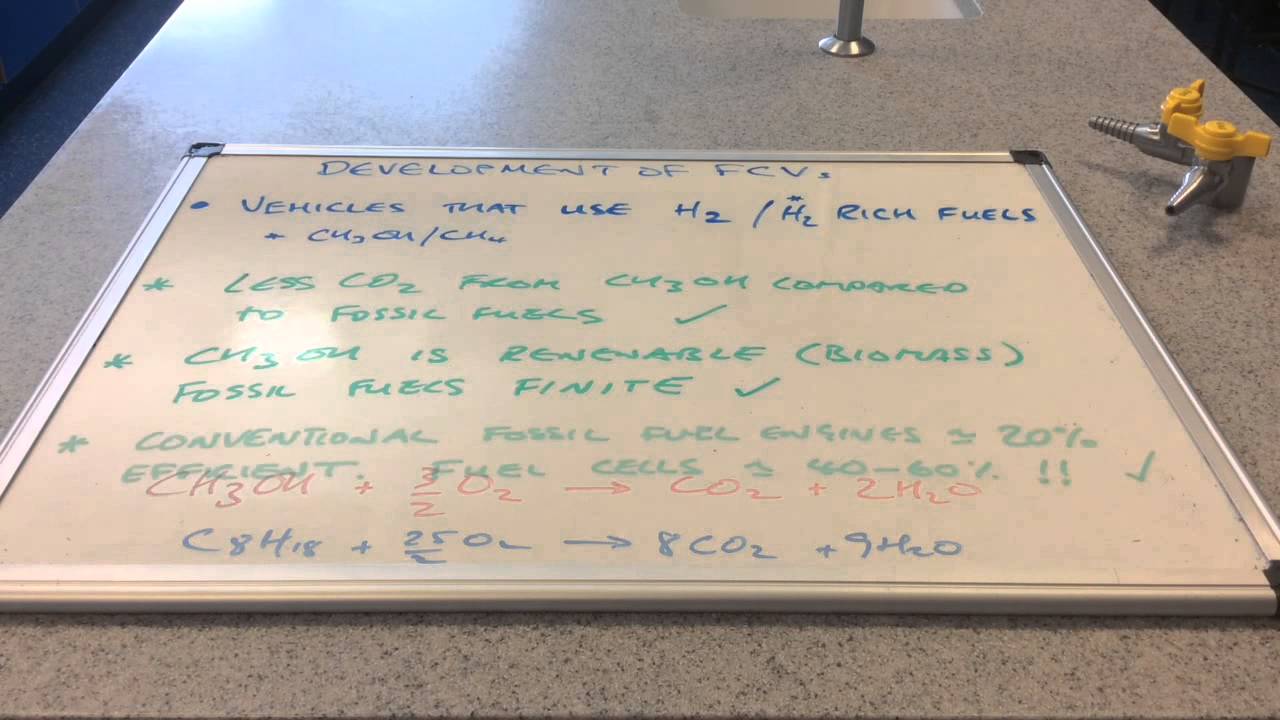 DEVELOPMENT OF FCVs
• VEHICLES THAT USE H2 / H2* RICH FUELS
* CH3OH/CH4
* LESS CO2 FROM CH3OH COMPARED
TO FOSSIL FUELS ✓
* CH3OH IS RENEWABLE (BIOMASS)
FOSSIL FUELS FINITE ✓
* CONVENTIONAL FOSSIL FUEL ENGINES ≃ 20%
EFFICIENT. FUEL CELLS ≃ 40-60% !! ✓
CH3OH + 3/2 O2 → CO2 + 2H2O
C8H18 + 25/2 O2 → 8CO2 + 9H2O